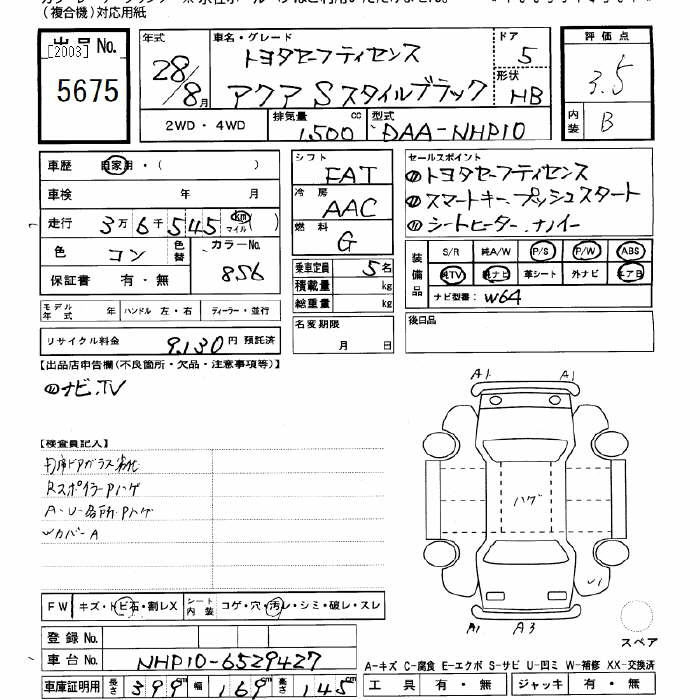 (複合機)対応用紙
出品No. [2003] 5675
年式 28/8月
車名・グレード トヨタセーフティセンス
アクア Sスタイルブラック
ドア 5
形状 HB
評価点 3.5
内装 B
2WD・4WD
排気量 1,500 cc
型式 DAA-NHP10
車歴 自家用・( )
車検 年 月
走行 3万6千545 km マイル( )
色 コン 色替 カラーNo. 856
保証書 有・無
シフト FAT
冷房 AAC
燃料 G
セールスポイント
トヨタセーフティセンス
スマートキー.プッシュスタート
シートヒーター.ナノイー
乗車定員 5名
積載量 kg
総重量 kg
装備品 S/R 純A/W P/S P/W ABS
純TV 純ナビ 革シート 外ナビ エアB
ナビ型番: W64
モデル年式 年 ハンドル 左・右 ディーラー・並行
名変期限 月 日
後日品
リサイクル料金 9,130円 預託済
【出品店申告欄(不良箇所・欠品・注意事項等)】
ナビ.TV
【検査員記入】
RスポイラーPハゲ
A・U・各所・Pハゲ
Wカバー A
A1 A1
ハゲ
A1 A3
スペア
FW キズ・トビ石・割レX シート内装 コゲ・穴・汚レ・シミ・破レ・スレ
登録No.
車台No. NHP10-6529427
車庫証明用 長さ 399cm 幅 169cm 高さ 145cm
A-キズ C-腐食 E-エクボ S-サビ U-凹ミ W-補修 XX-交換済
工具 有・無 ジャッキ 有・無